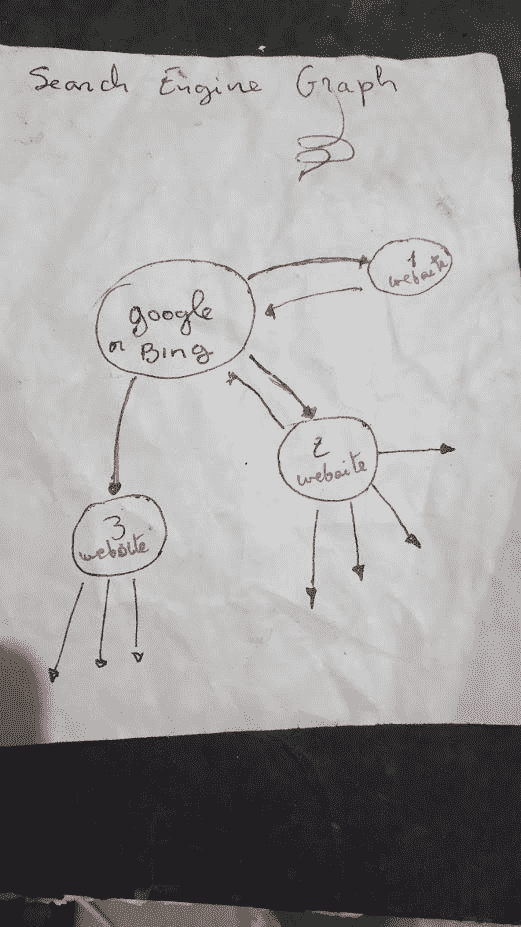 Search Engine Graph
google
or Bing
1
website
2
website
3
website